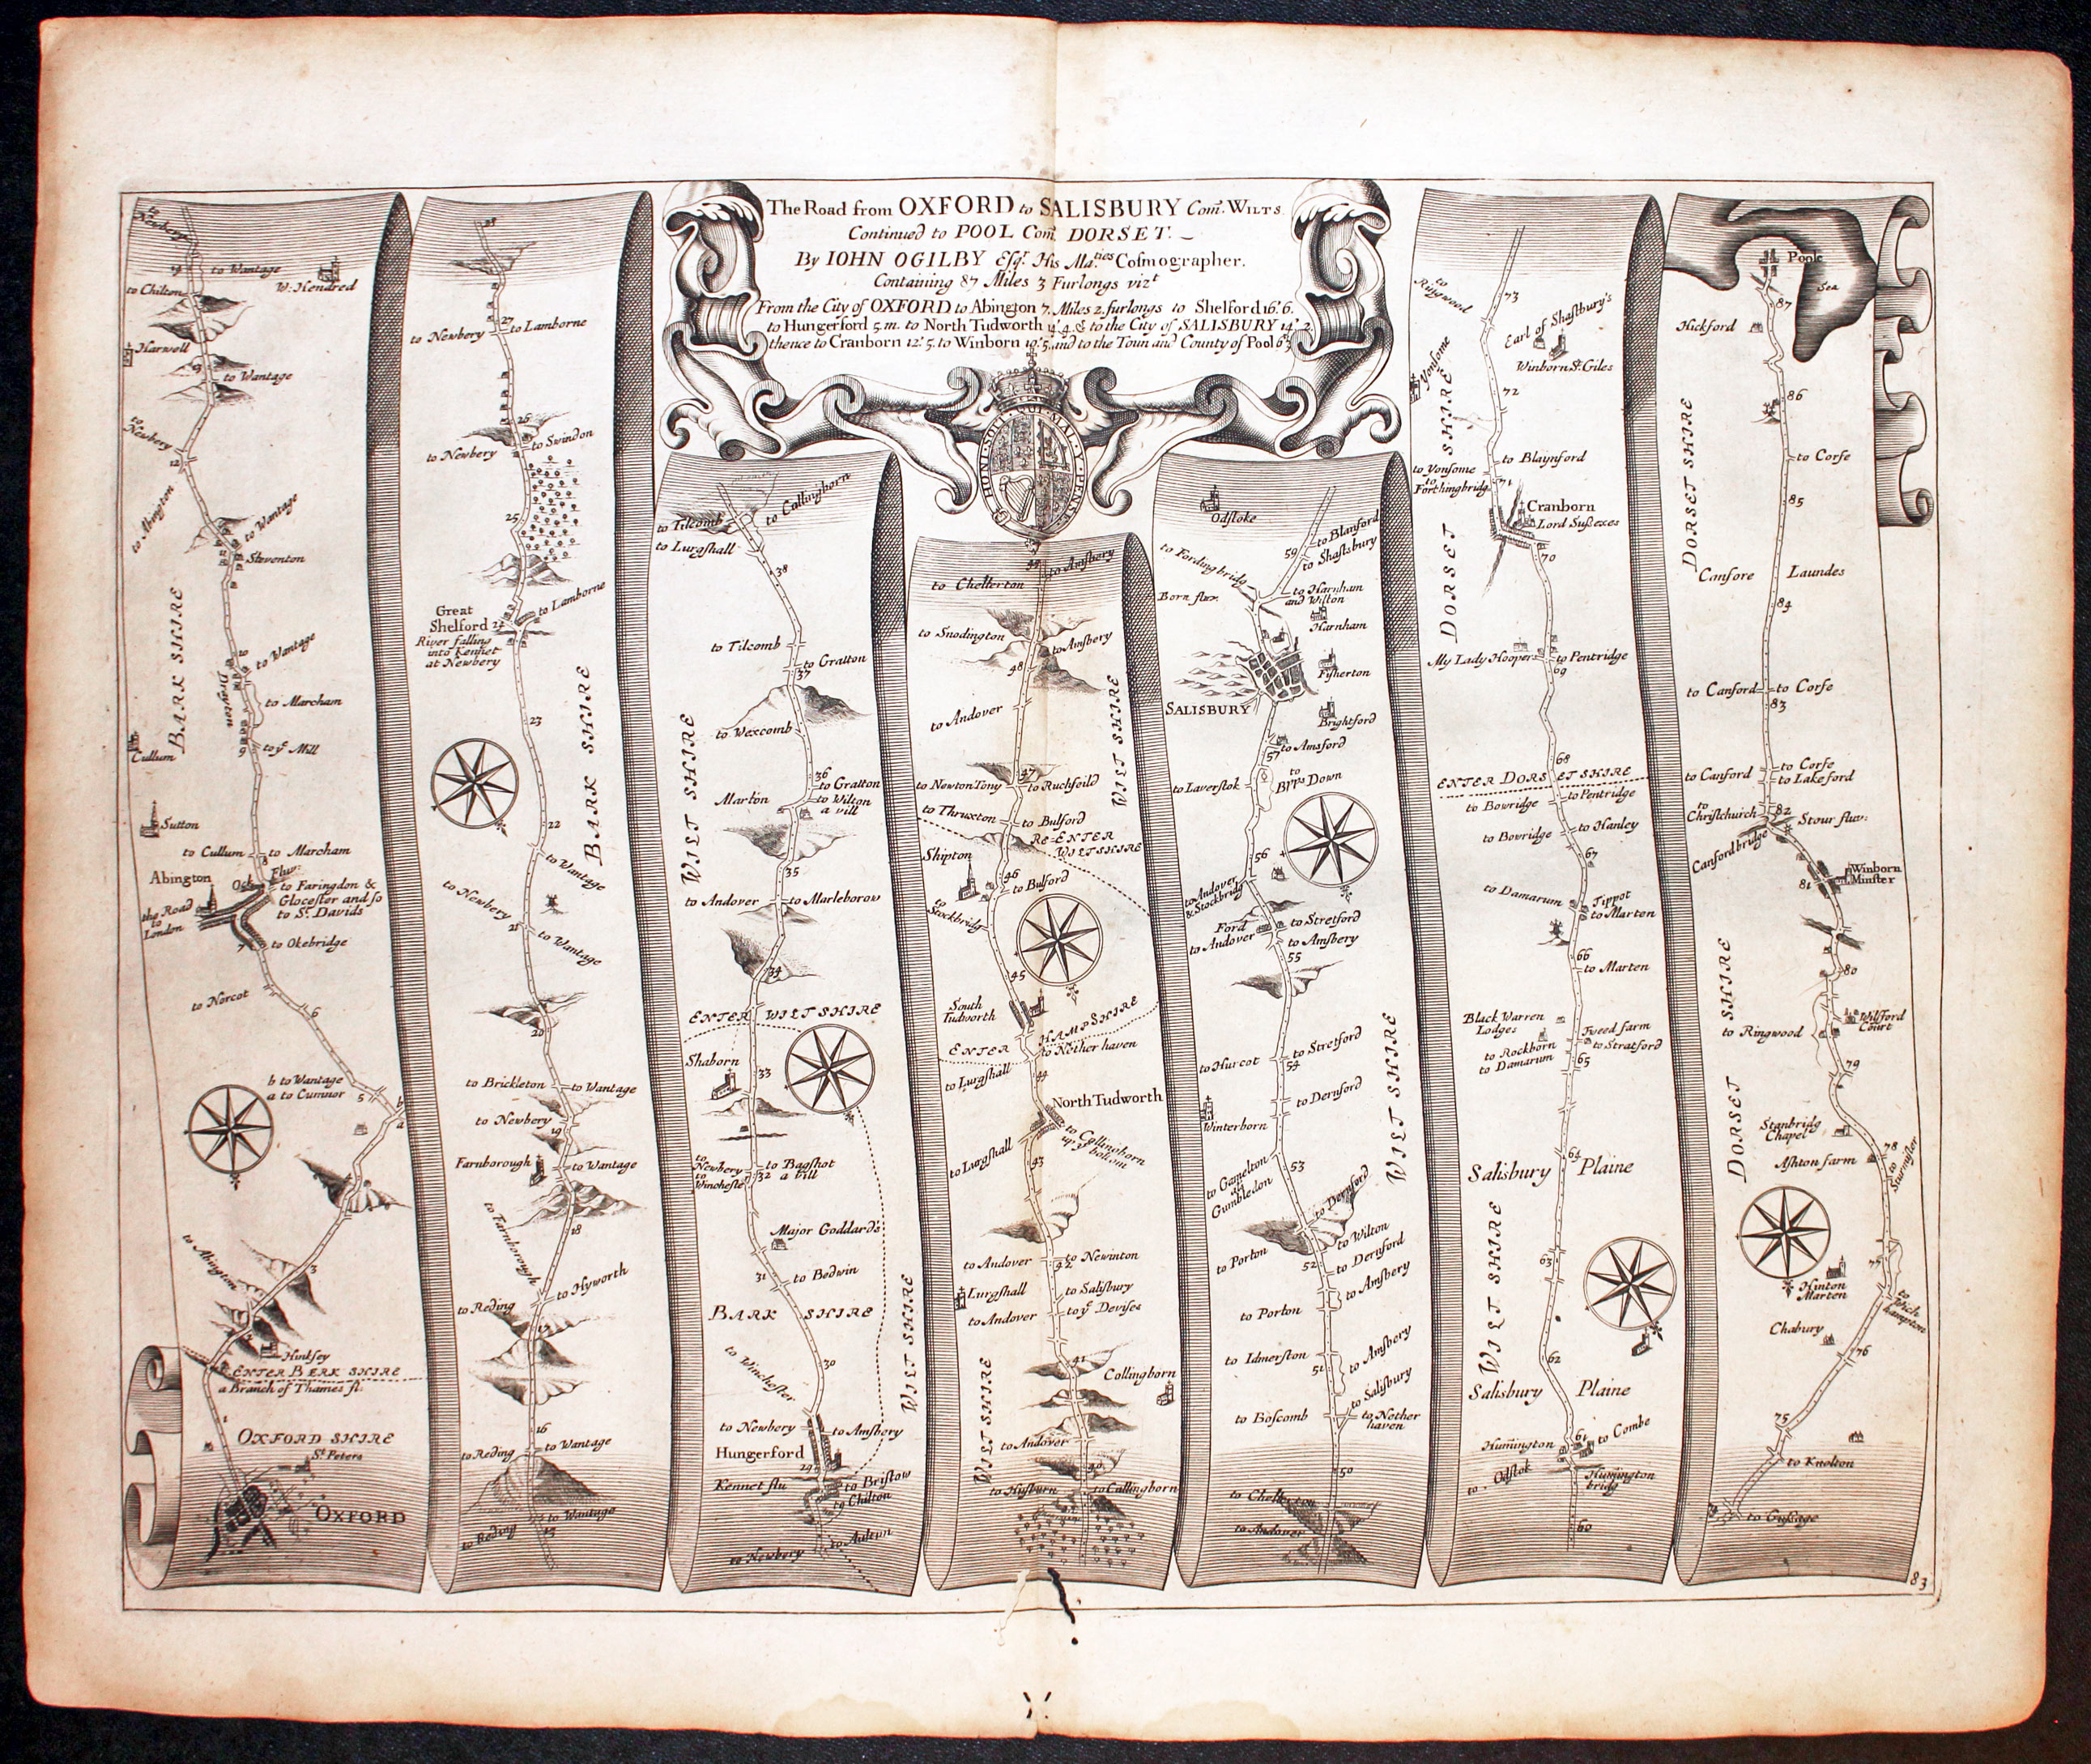 The Road from OXFORD to SALISBURY Com. WILTS.
Continued to POOL Com. DORSET.
By IOHN OGILBY Esqr. His Ma.ties Cosmographer.
Containing 87 Miles 3 Furlongs vizt
From the City of OXFORD to Abington 7. Miles 2. furlongs to Shelford 16. 6.
to Hungerford 5. m. to North Tudworth 14. 4. & to the City of SALISBURY 14. 2.
thence to Cranborn 12. 5. to Winborn 10. 5. and to the Toun and County of Pool 6.
HONI SOIT QUI MAL Y PENSE
to Newbery
14
to Wantage
W. Hendred
to Chilton
Harwell
13
to Wantage
to Newbery
12
to Abington
to Wantage
Steventon
BARK SHIRE
10
to Wantage
Drayton
to Marcham
to ye Mill
Cullum
Sutton
to Cullum
8
to Marcham
Abington
Ock Flur.
to Faringdon &
Glocester and so
to St. Davids
the Road
to
London
7
to Okebridge
to Norcot
6
b to Wantage
a to Cumnor
5
b
a
to Abington
3
2
Hinksey
ENTER BERK SHIRE
a Branch of Thames fl.
1
OXFORD SHIRE
St. Peters
OXFORD
28
27
to Newbery
to Lamborne
26
to Swindon
to Newbery
25
to Lamborne
Great
Shelford
24
River falling
into Kennet
at Newbery
23
BARK SHIRE
22
to Wantage
to Newbery
21
to Wantage
20
to Brickleton
to Wantage
to Newbery
19
Farnborough
to Wantage
18
to Farnborough
to Hyworth
to Reding
17
16
to Reding
to Wantage
to Wantage
to Reding
15
to Tilcomb
to Collingborn
to Lurgshall
38
to Tilcomb
to Gratton
37
to Wexcomb
WILT SHIRE
36
to Gratton
Marton
to Wilton
a vill
35
to Andover
to Marleborow
34
ENTER WILT SHIRE
Shaborn
33
to
Newbery
to
Winchester
32
to Bagshot
a vill
Major Goddard's
31
to Bedwin
BARK SHIRE
WILT SHIRE
30
to Winchester
to Newbery
to Amsbery
Hungerford
29
Kennet flu
to Bristow
to Chilton
to Newbery
49
to Amsbery
to Chelterton
to Snodington
to Amsbery
48
to Andover
WILT SHIRE
47
to Newton Tony
to Ruchfeild
to Thruxton
to Bulford
RE-ENTER
WILTSHIRE
Shipton
46
to Bulford
to
Stockbridg
45
South
Tudworth
ENTER HAMPSHIRE
to Nether haven
to Lurgshall
44
North Tudworth
to Collingborn
bottom
to Lurgshall
43
to Andover
to Newinton
42
Lurgshall
to Salisbury
to Andover
to ye Devises
41
Collingborn
WILT SHIRE
to Andover
40
to Husburn
to Collingborn
Odstoke
to Blanford
59
to Shaftsbury
to Fordingbridg
Born flur.
to Harnham
and Wilton
Harnham
Fisherton
SALISBURY
Brightford
to Amsford
57
to Laverstok
to
Bipps Down
56
to Andover
& Stockbridg
Ford
to Andover
to Stretford
to Amsbery
55
to Stretford
to Hurcot
54
to Dernford
Winterborn
WILT SHIRE
53
to Gamelton
als
Gumbledon
to Dernford
to Wilton
to Porton
to Dernford
52
to Amsbery
to Porton
to Amsbery
to Idmerston
51
to Salisbury
to Boscomb
to Nether
haven
50
to Andover
to
Ringwood
73
Earl of Shaftbury's
Winborn St. Giles
Yonsome
72
DORSET SHIRE
to Yonsome
to Blaynford
to
Forthingbridg
71
Cranborn
Lord Sussexes
70
My Lady Hooper
to Pentridge
69
68
ENTER DORSETSHIRE
to Bowridge
to Pentridge
to Bovridge
to Hanley
67
to Damarum
Tippot
to Marton
66
to Marten
Black Warren
Lodges
Tweed farm
to Stratford
to Rockborn
to Damarum
65
64
Salisbury Plaine
WILT SHIRE
63
62
Salisbury Plaine
to Combe
61
Humington
to Odstok
Humington
bridg
60
Poole
Sea
87
Hickford
86
DORSET SHIRE
to Corfe
85
Canfore Laundes
84
to Canford
to Corfe
83
to Corfe
to Canford
to Lakeford
to
Christchurch
82
Stour fluv:
Canfordbridge
Winborn
Minster
81
80
Wilsford
Court
to Ringwood
79
DORSET SHIRE
Stanbridg
Chapel
78
Ashton farm
to
Sturmister
77
Hinton
Marten
to
Wich
hampton
Chabury
76
75
to Knolton
to Gussage
83